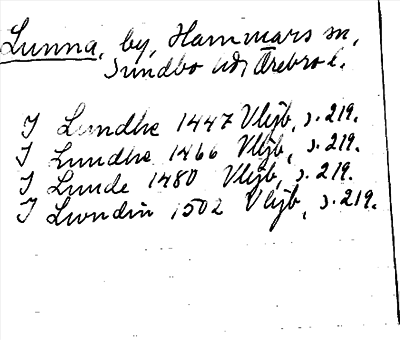 Lunna, by, Hammars sn,
Sundbo hd, Örebro l.
I Lundhe 1447 Vljb, s. 219.
I Lundhe 1466 Vljb, s. 219.
I Lunde 1480 Vljb, s. 219.
I Lwndin 1502 Vljb, s. 219.